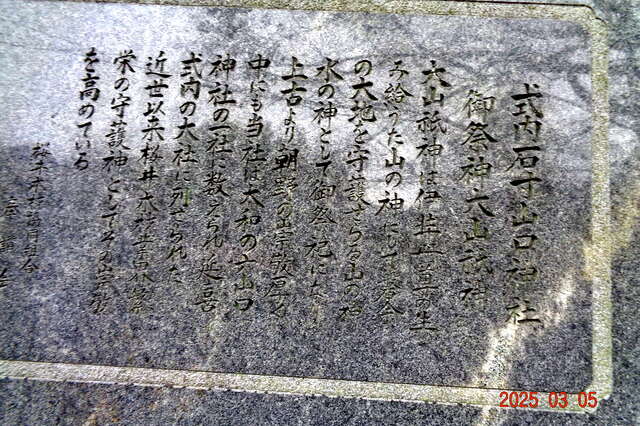 式内石寸山口神社
御祭神大山祇神
大山祇神は伊
み給うた山の神にして
の大地を守護せらる山の神
水の神として御祭祀になり
上古より朝野の崇敬厚く
中にも当社は大和の六山口
神社の一社に数えられ延喜
式内の大社に列せられた
近世以来桜井木材業界繁
栄の守護神としてその崇敬
を高めている
2025 03 05